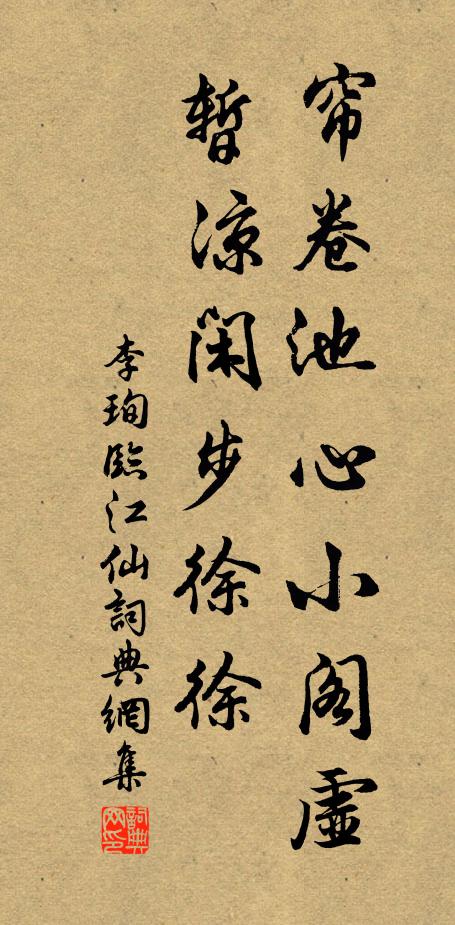 帘卷池心小阁虚
暫凉闲步徐徐
李珣臨江仙詞典網集
詞典网印